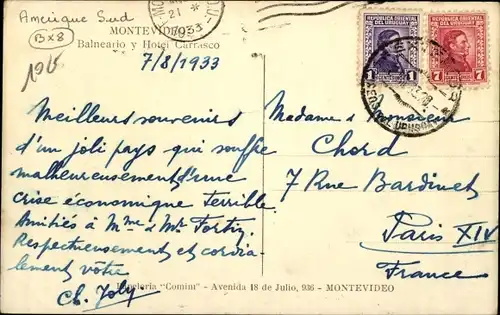 Amérique Sud
B x 8
MONTEVIDEO
Balneario y Hotel Carrasco
21
1933
REPUBLICA ORIENTAL DEL URUGUAY
1 1
REPUBLICA ORIENTAL DEL URUGUAY
7 7
7/8/1933
Meilleurs souvenirs
d'un joli pays qui souffre
malheureusement d'une
crise économique terrible.
Amitiés à Mme & Mr Fortin
Respectueusement et cordia-
lement vôtre
Ch. Joly
Madame & monsieur
Chord
7 Rue Bardinet
Paris XIV
France
Papeleria "Comini" - Avenida 18 de Julio, 936 - MONTEVIDEO